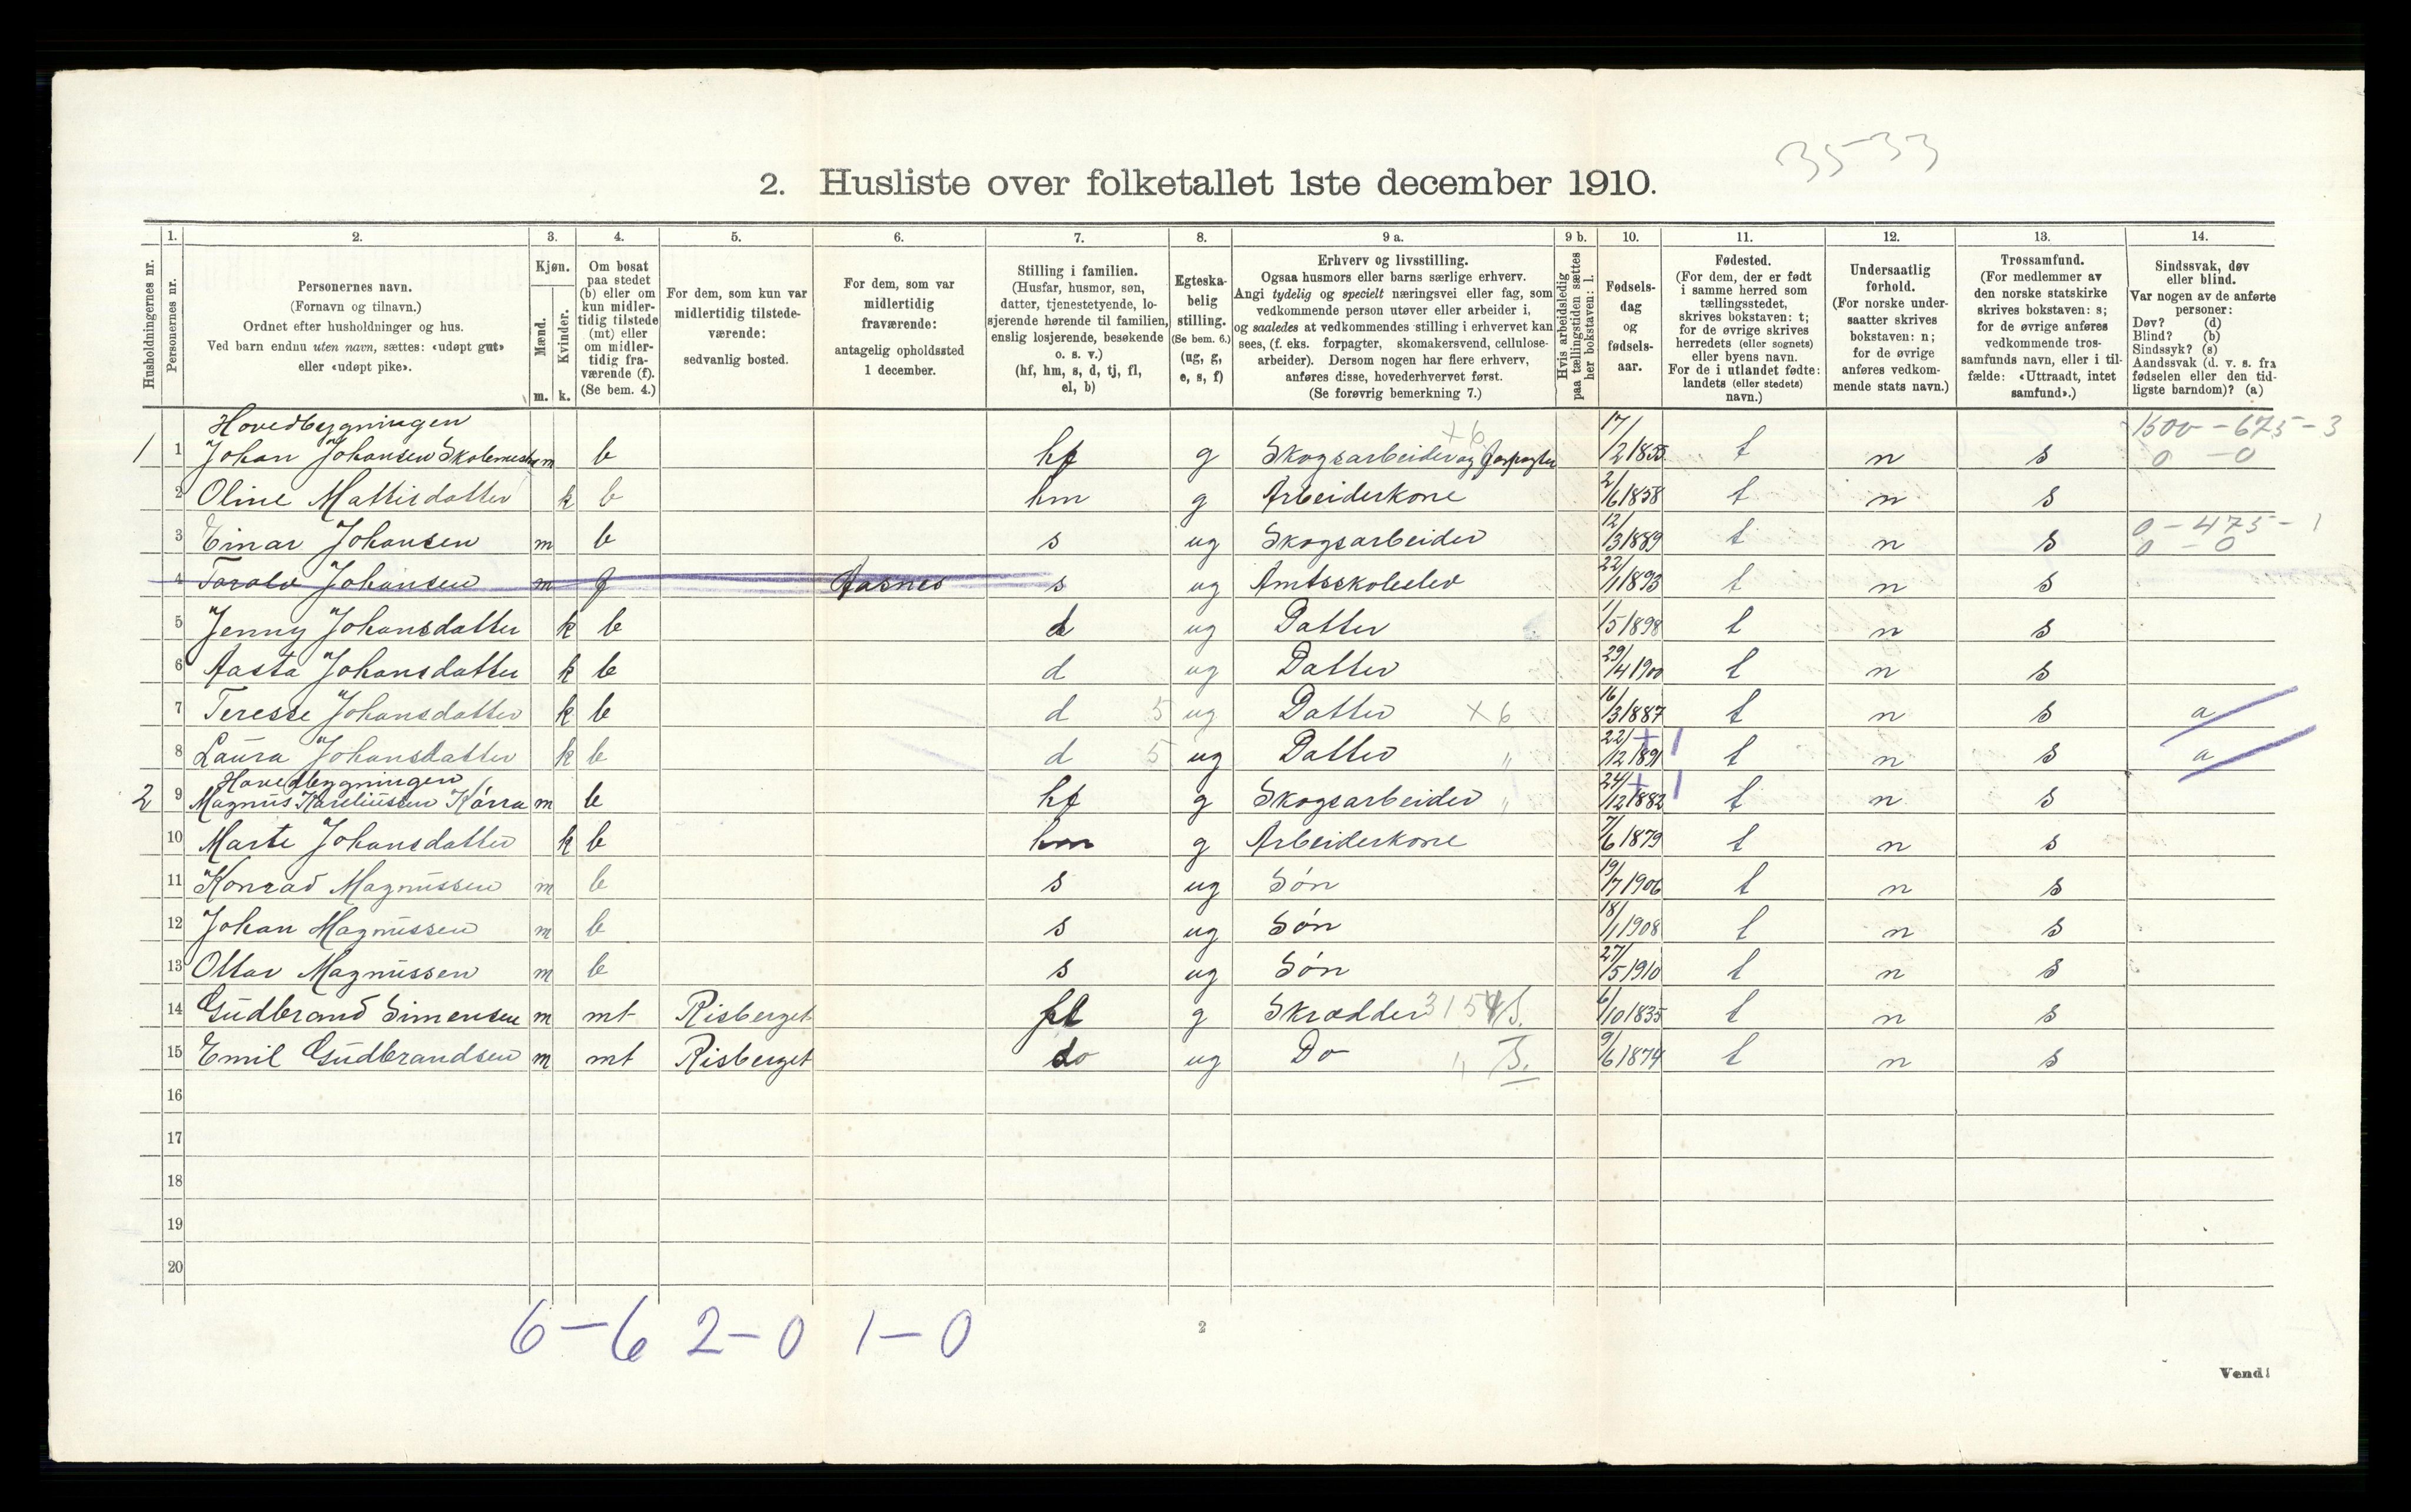 35-33
2. Husliste over folketallet 1ste december 1910.
1. 2. 3. 4. 5. 6. 7. 8. 9 a. 9 b. 10. 11. 12. 13. 14.
Husholdningernes nr.
Personernes nr.
Personernes navn.
(Fornavn og tilnavn.)
Ordnet efter husholdninger og hus.
Ved barn endnu uten navn, sættes: «udøpt gut»
eller «udøpt pike».
Kjøn.
Mænd.
Kvinder.
m. k.
Om bosat
paa stedet
(b) eller om
kun midler-
tidig tilstede
(mt) eller
om midler-
tidig fra-
værende (f).
(Se bem. 4.)
For dem, som kun var
midlertidig tilstede-
værende:
sedvanlig bosted.
For dem, som var
midlertidig
fraværende:
antagelig opholdssted
1 december.
Stilling i familien.
(Husfar, husmor, søn,
datter, tjenestetyende, lo-
sjerende hørende til familien,
enslig losjerende, besøkende
o. s. v.)
(hf, hm, s, d, tj, fl,
el, b)
Egteska-
belig
stilling.
(Se bem. 6.)
(ug, g,
e, s, f)
Erhverv og livsstilling.
Ogsaa husmors eller barns særlige erhverv.
Angi tydelig og specielt næringsvei eller fag, som
vedkommende person utøver eller arbeider i,
og saaledes at vedkommendes stilling i erhvervet kan
sees, (f. eks. forpagter, skomakersvend, cellulose-
arbeider). Dersom nogen har flere erhverv,
anføres disse, hovederhvervet først.
(Se forøvrig bemerkning 7.)
Hvis arbeidsledig
paa tællingstiden sættes
her bokstaven: l.
Fødsels-
dag
og
fødsels-
aar.
Fødested.
(For dem, der er født
i samme herred som
tællingsstedet,
skrives bokstaven: t;
for de øvrige skrives
herredets (eller sognets)
eller byens navn.
For de i utlandet fødte:
landets (eller stedets)
navn.)
Undersaatlig
forhold.
(For norske under-
saatter skrives
bokstaven: n;
for de øvrige
anføres vedkom-
mende stats navn.)
Trossamfund.
(For medlemmer av
den norske statskirke
skrives bokstaven: s;
for de øvrige anføres
vedkommende tros-
samfunds navn, eller i til-
fælde: «Uttraadt, intet
samfund».)
Sindssvak, døv
eller blind.
Var nogen av de anførte
personer:
Døv? (d)
Blind? (b)
Sindssyk? (s)
Aandssvak (d. v. s. fra
fødselen eller den tid-
ligste barndom)? (a)
Hovedbygningen ×6 1500-675-3
1 1 Johan Johansen Skolemester m b hf g Skogsarbeider og Forpagter 17/2 1855 t n s 0-0
2 Oline Mattisdatter k b hm g Arbeiderkone 2/6 1858 t n s
3 Einar Johansen m b s ug Skogsarbeider 12/3 1889 t n s 0-475-1
0-0
4 Torolv Johansen m f Aasnes s ug Amtsskoleelev 22/1 1893 t n s
5 Jenny Johansdatter k b d ug Datter 1/5 1898 t n s
6 Aasta Johansdatter k b d ug Datter 29/4 1900 t n s
7 Teresse Johansdatter k b d 5 ug Datter ×6 16/3 1887 t n s a
8 Laura Johansdatter k b d 5 ug Datter " 22/12 1891 +1 t n s a
Hovedbygningen
2 9 Magnus Kareliussen Kårra m b hf g Skogsarbeider " 24/12 1882 +1 t n s
10 Marte Johansdatter k b hm g Arbeiderkone 7/6 1879 t n s
11 Konrad Magnussen m b s ug Søn 19/7 1906 t n s
12 Johan Magnussen m b s ug Søn 18/1 1908 t n s
13 Ottar Magnussen m b s ug Søn 27/5 1910 t n s
14 Gudbrand Simensen m mt Risberget fl g Skrædder 3154 S. 6/10 1835 t n s
15 Emil Gudbrandsen m mt Risberget do ug Do " S. 9/6 1874 t n s
16
17
18
19
20
6-6 2-0 1-0
2
Vend!